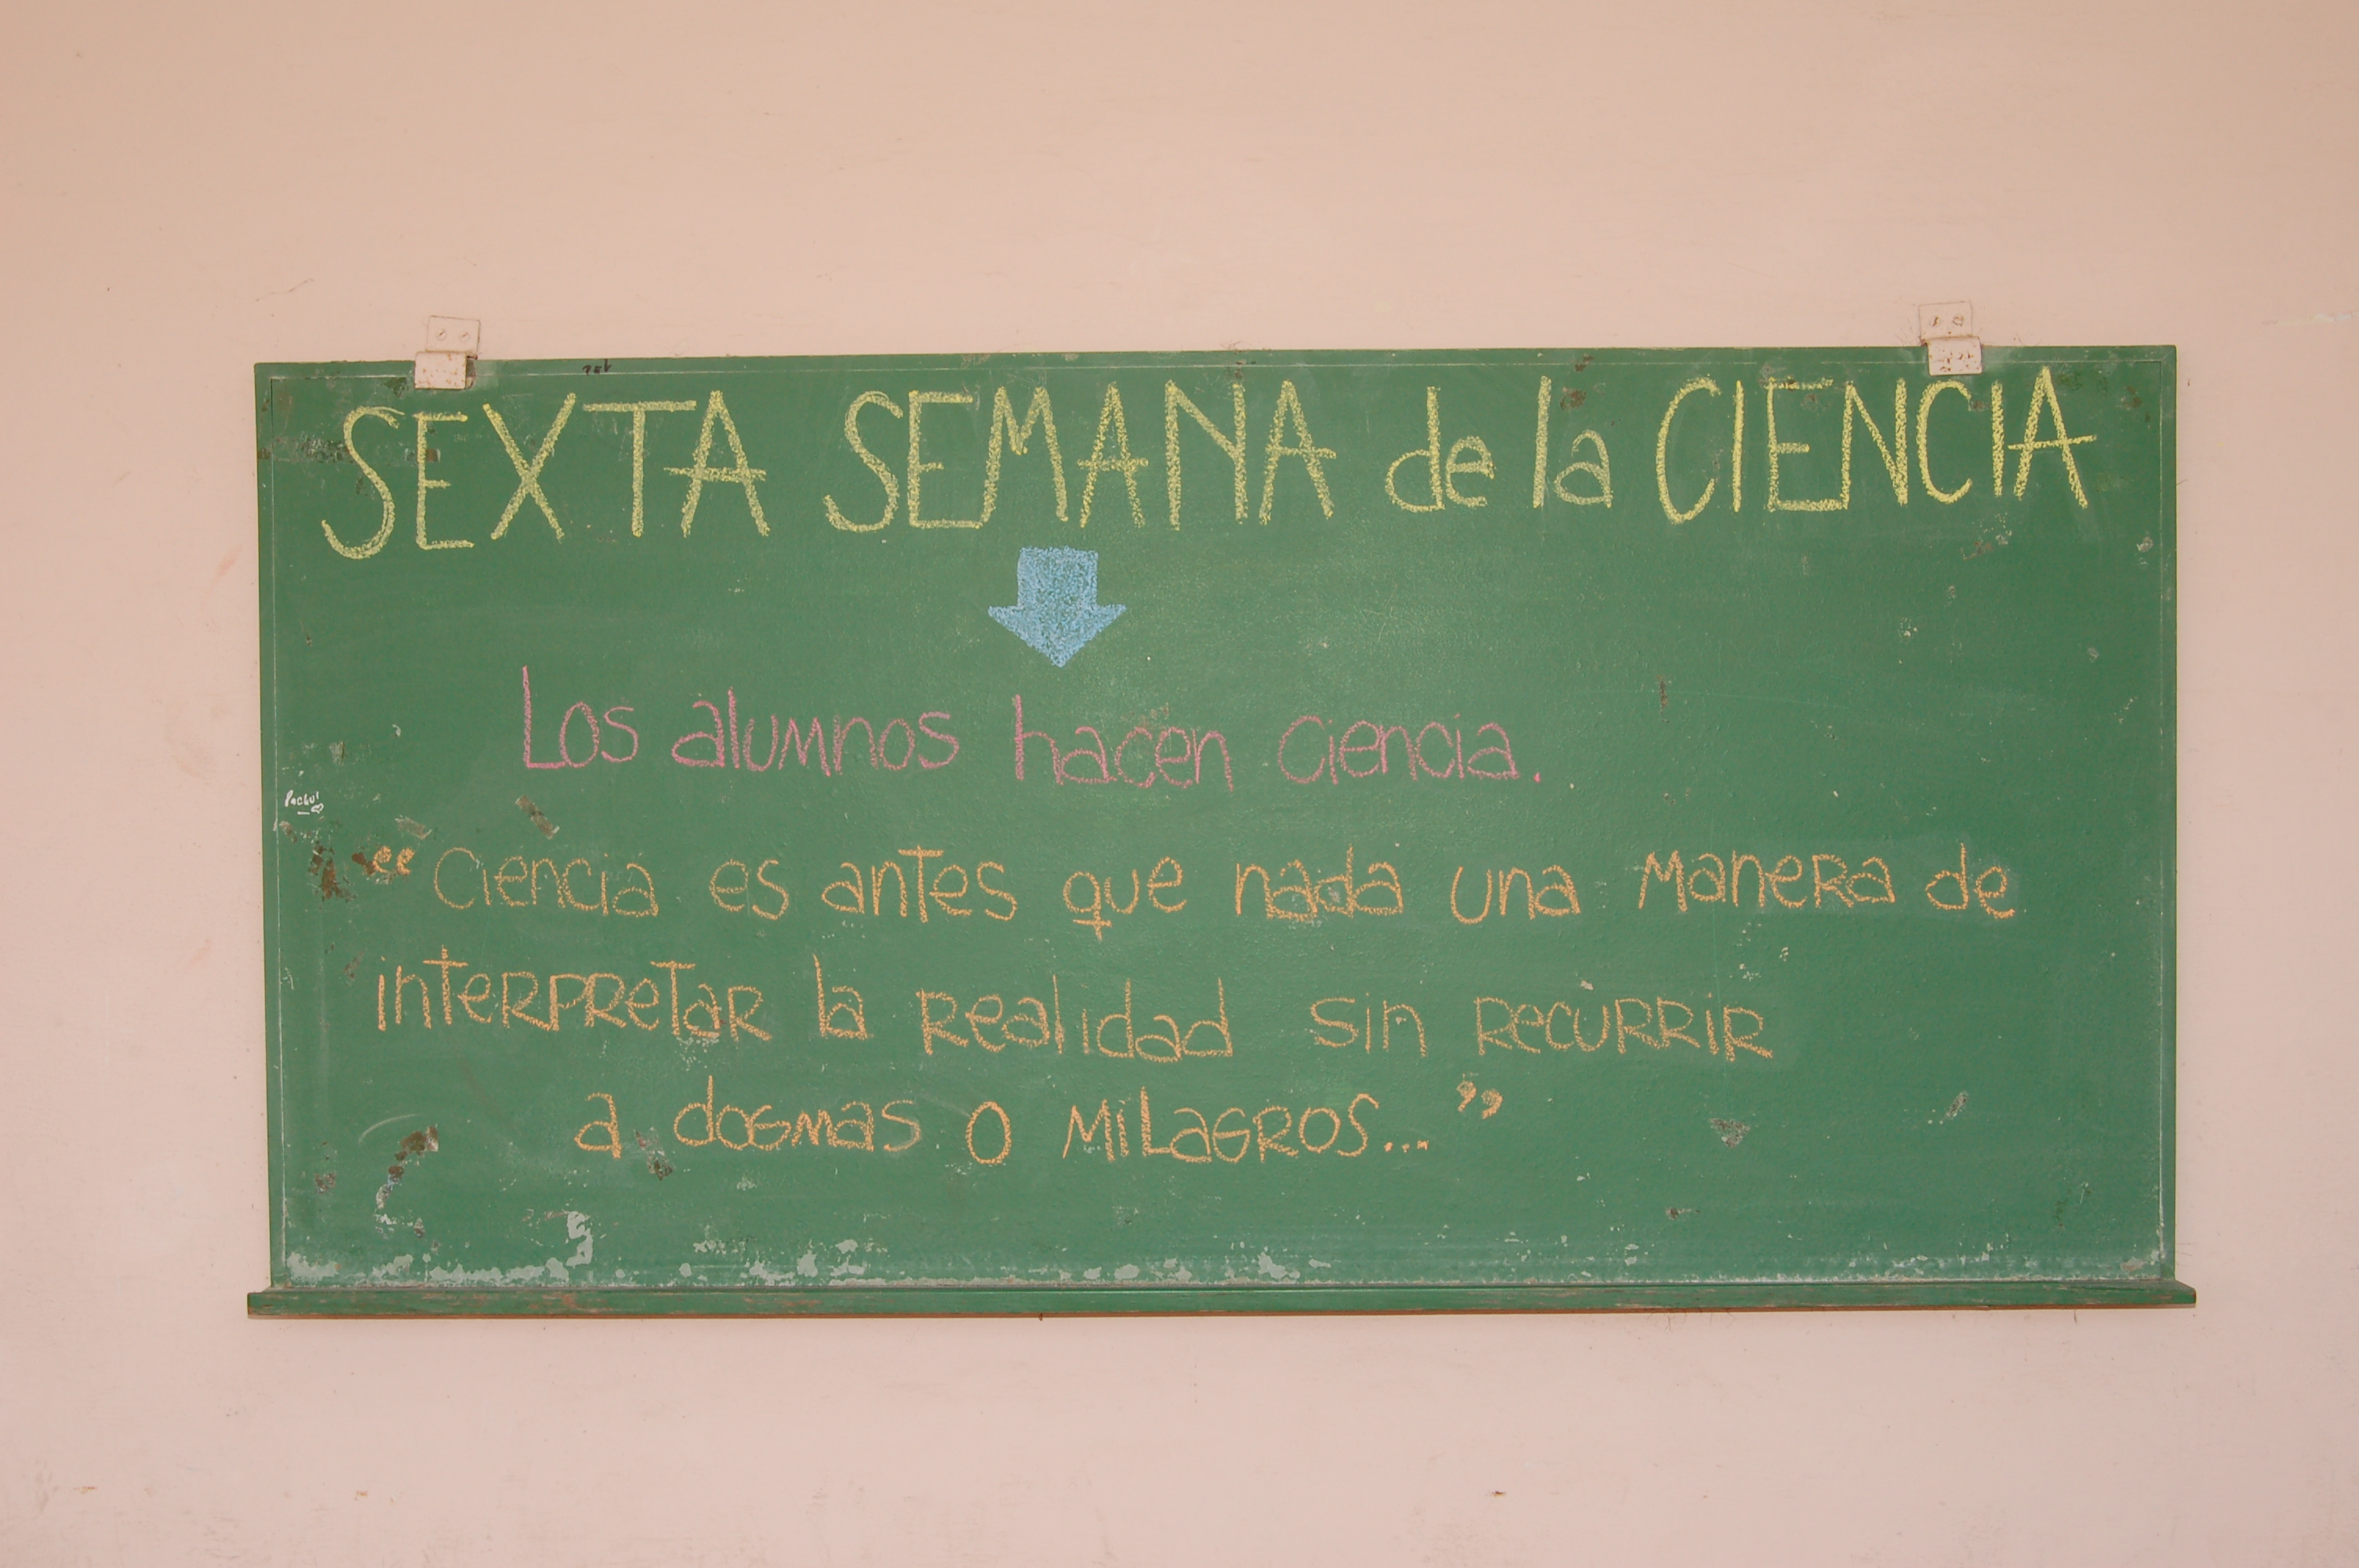 SEXTA SEMANA de la CIENCIA
Los alumnos hacen ciencia.
“Ciencia es antes que nada una manera de
interpretar la realidad sin recurrir
a dogmas o milagros...”